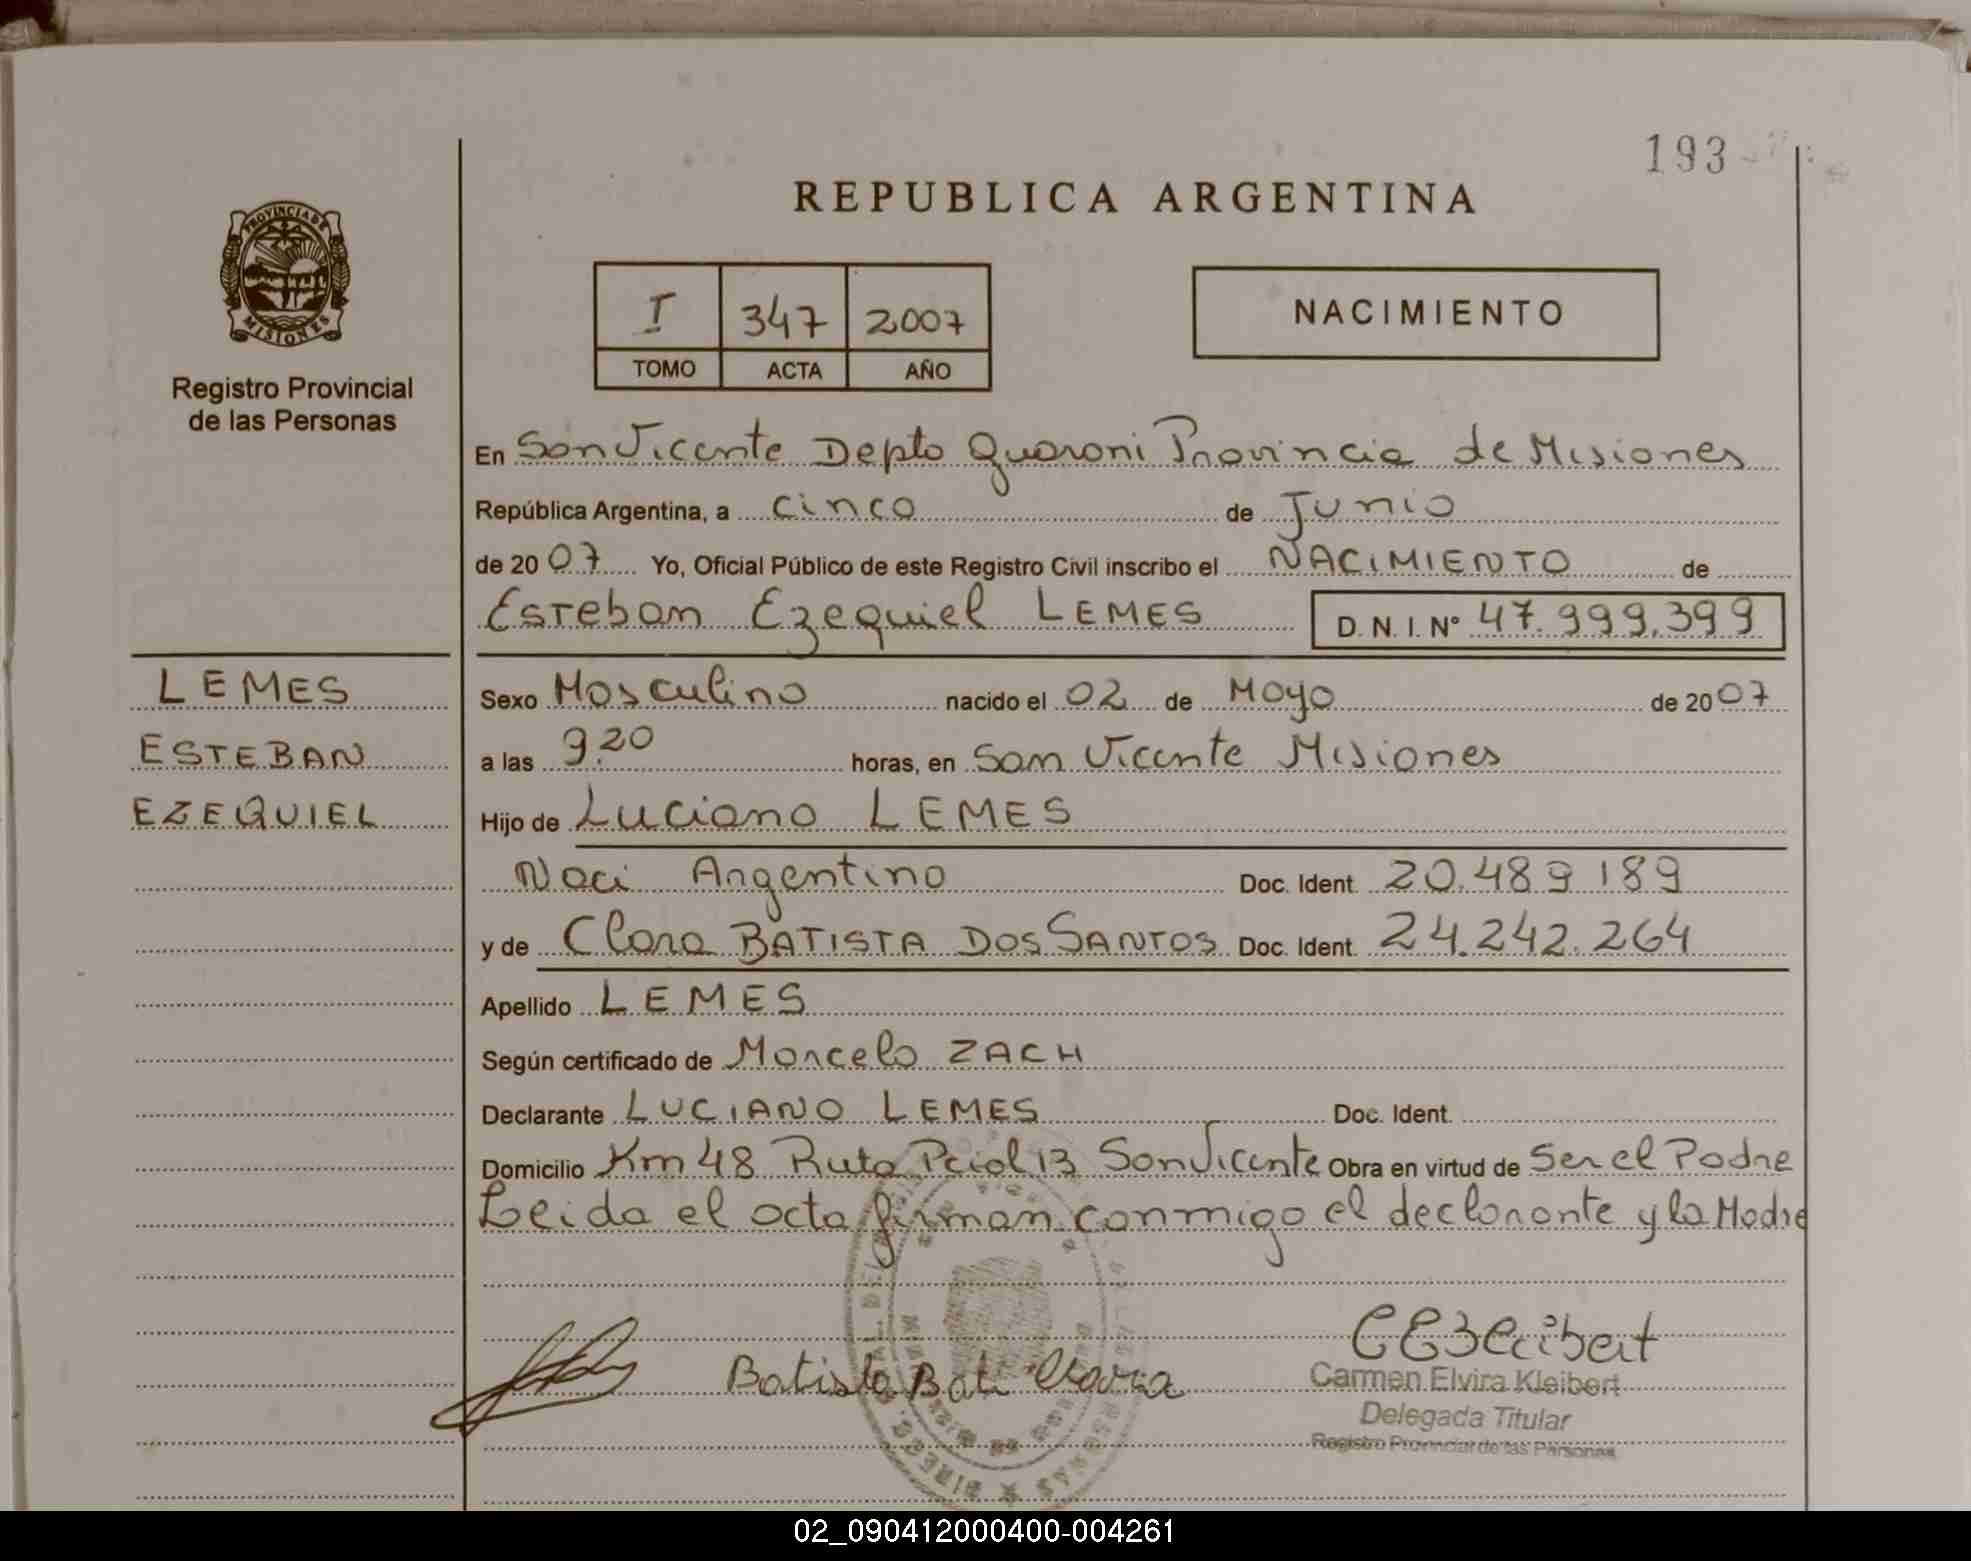 193
REPUBLICA ARGENTINA
PROVINCIA DE MISIONES
Registro Provincial
de las Personas
I 347 2007
TOMO ACTA AÑO
NACIMIENTO
En San Vicente Depto Guarani Provincia de Misiones
República Argentina, a cinco de Junio
de 2007 Yo, Oficial Público de este Registro Civil inscribo el NACIMIENTO de
Esteban Ezequiel LEMES D. N. I. N° 47.999.399
LEMES
ESTEBAN
EZEQUIEL
Sexo Masculino nacido el 02 de Mayo de 2007
a las 9.20 horas, en San Vicente Misiones
Hijo de Luciano LEMES
Naci Argentino Doc. Ident. 20.489 189
y de Clara BATISTA DOS SANTOS Doc. Ident. 24.242.264
Apellido LEMES
Según certificado de Marcelo ZACH
Declarante LUCIANO LEMES Doc. Ident.
Domicilio Km 48 Ruta Pcial 13 San Vicente Obra en virtud de Ser el Padre
Leida el acta firman conmigo el declarante y la Madre
Batista
Carmen Elvira Kleibert
Delegada Titular
Registro Provincial de las Personas
02_090412000400-004261